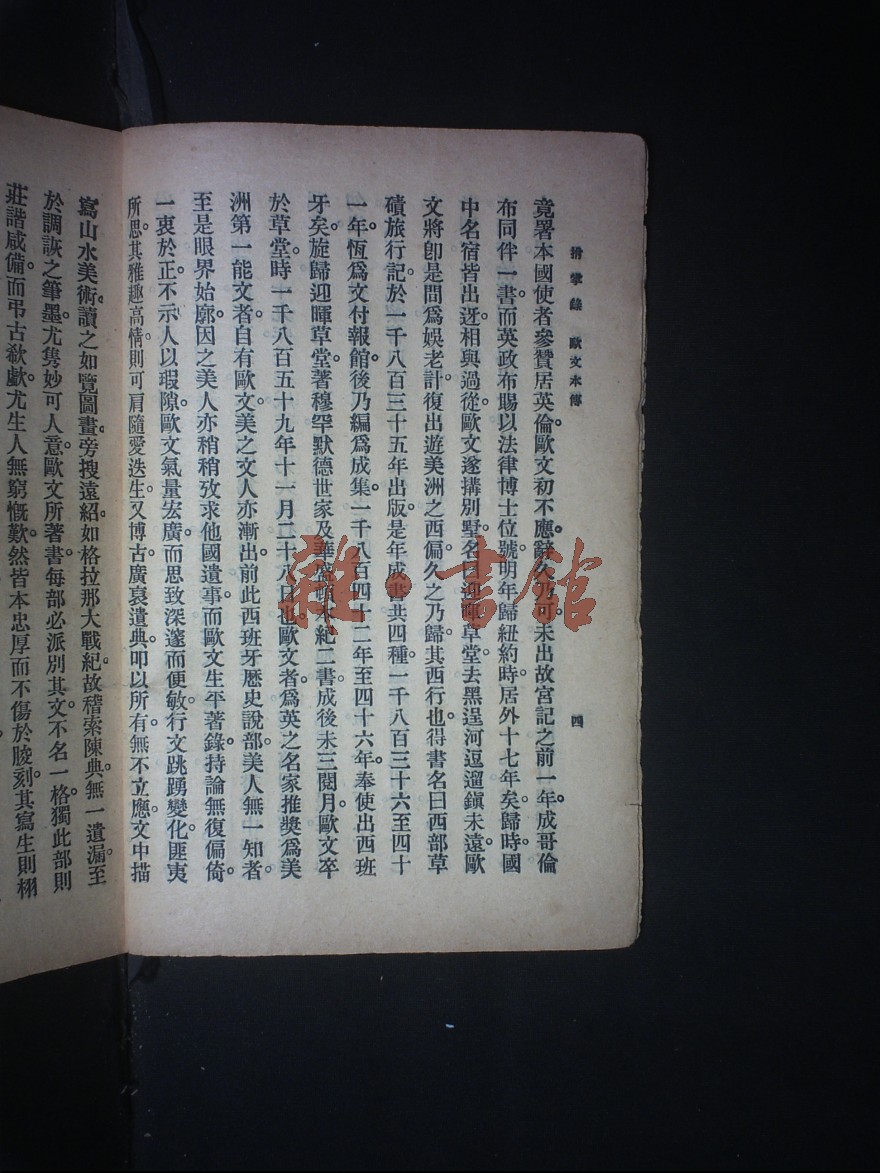 拊掌錄 歐文本傳
四
竟署本國使者參贊居英倫歐文初不應辭久乃可未出故宮記之前一年成哥倫
布同伴一書而英政布賜以法律博士位號明年歸紐約時居外十七年矣歸時國
中名宿皆出迓相與過從歐文遂搆別墅名曰迎暉草堂去黑逞河逗遛鎭未遠歐
文將卽是間爲娛老計復出遊美洲之西偏久之乃歸其西行也得書名曰西部草
磧旅行記於一千八百三十五年出版是年成書共四種一千八百三十六至四十
一年恆爲文付報館後乃編爲成集一千八百四十二年至四十六年奉使出西班
牙矣旋歸迎暉草堂著穆罕默德世家及華盛頓本紀二書成後未三閱月歐文卒
於草堂時一千八百五十九年十一月二十八日也歐文者爲英之名家推獎爲美
洲第一能文者自有歐文美之文人亦漸出前此西班牙歷史說部美人無一知者
至是眼界始廓因之美人亦稍稍攷求他國遺事而歐文生平著錄持論無復偏倚
一衷於正不示人以瑕隙歐文氣量宏廣而思致深邃而便敏行文跳踴變化匪夷
所思其雅趣高情則可肩隨愛迭生又博古廣裒遺典叩以所有無不立應文中描
寫山水美術讀之如覽圖畫旁搜遠紹如格拉那大戰紀故稽索陳典無一遺漏至
於調詼之筆墨尤雋妙可人意歐文所著書每部必派別其文不名一格獨此部則
莊諧咸備而弔古欷歔尤生人無窮慨歎然皆本忠厚而不傷於朘刻其寫生則栩
雜·書館